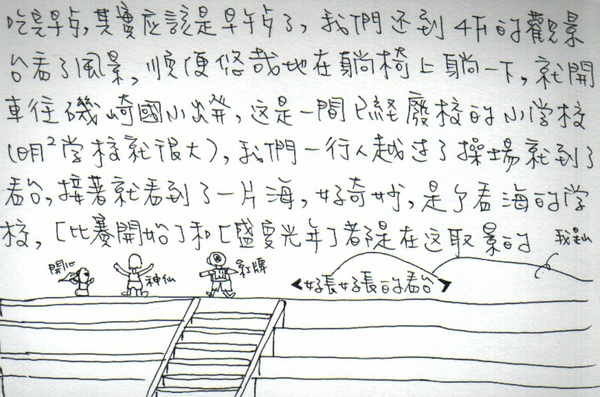 吃完早点,其實應該是早午点了,我們还到4F的觀景
台看了風景,順便悠哉地在躺椅上躺一下,就開
車往磯崎國小,這是一間已經廢校的小学校
(明²学校就很大),我們一行人越过了操場就到了
看台,接著就看到了一片海,好奇妙,是个看海的学
校,「比賽開始」和「盛夏光年」都是在这取景的
我是山
開心
神仙
紅牌
<好長好長的看台>